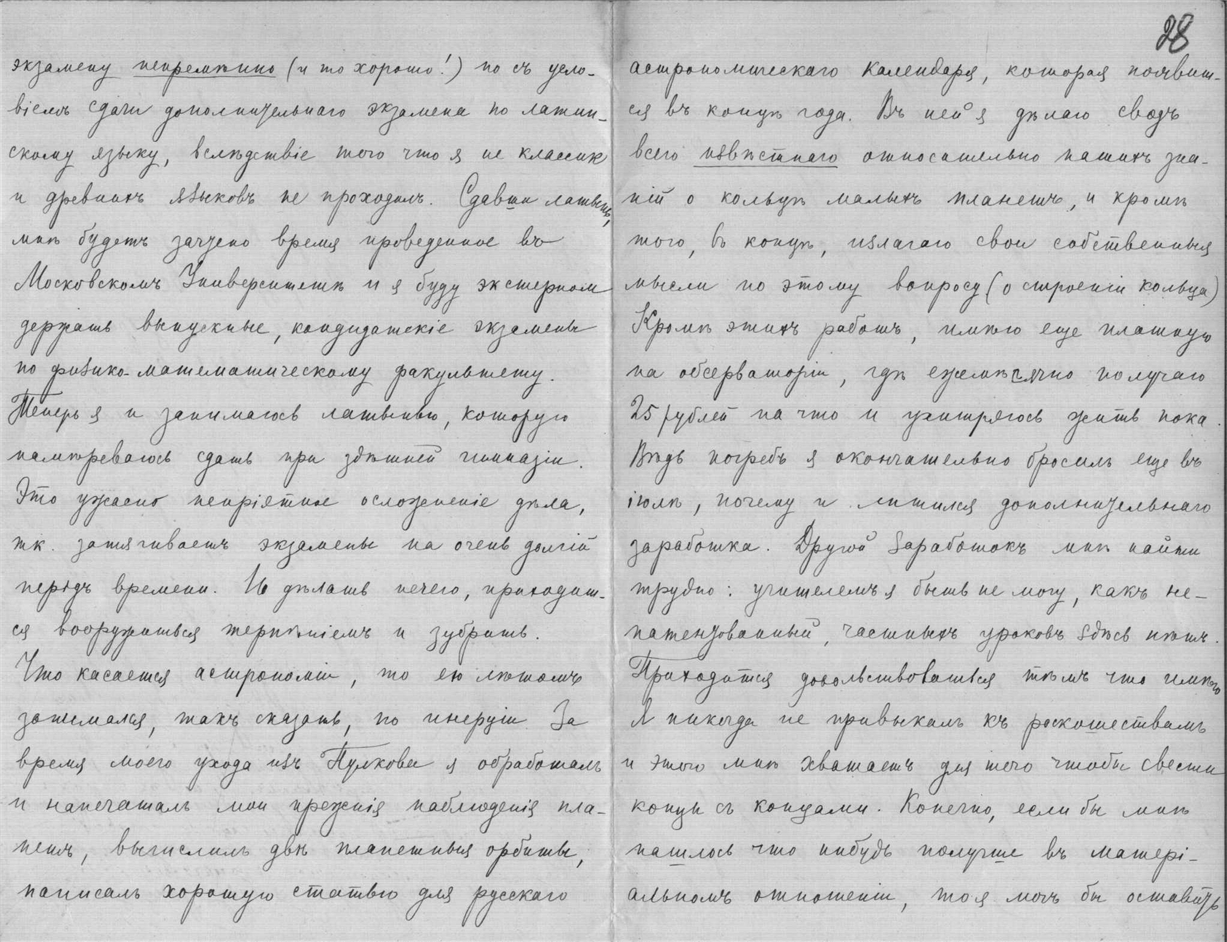 экзамену непремѣнно (и то хорошо!) но съ усло-
віемъ сдачи дополнительнаго экзамена по латин-
скому языку, вслѣдствіе того что я не классик
и древнихъ языковъ не проходилъ. Сдавши латынь,
мнѣ будетъ зачтено время проведенное въ
Московскомъ Университетѣ и я буду экстерном
держать выпускные, кандидатскіе экзамены
по физико-математическому факультету.
Теперь я и занимаюсь латынью, которую
намѣреваюсь сдать при здѣшней гимназіи.
Это ужасно непріятное осложненіе дѣла,
тк. затягиваетъ экзамены на очень долгій
періодъ времени. Но дѣлать нечего, приходит-
ся вооружиться терпѣніемъ и зубрить.
Что касается астрономіи, то ею лѣтомъ
занимался, такъ сказать, по инерціи. За
время моего ухода изъ Пулкова я обработалъ
и напечаталъ мои прежнія наблюденія пла-
нетъ, вычислилъ двѣ планетныя орбиты,
написалъ хорошую статью для русскаго
28
астрономическаго календаря, которая появит-
ся въ концѣ года. Въ ней я дѣлаю сводъ
всего извѣстнаго относительно нашихъ зна-
ній о кольцѣ малыхъ планетъ, и кромѣ
того, въ концѣ, излагаю свои собственныя
мысли по этому вопросу (о строеніи кольца)
Кромѣ этихъ работъ, имѣю еще платную
на обсерваторіи, гдѣ ежемѣсячно получаю
25 рублей на что и ухитряюсь жить пока.
Вѣдь погребъ я окончательно бросилъ еще въ
іюлѣ, почему и лишился дополнительнаго
заработка. Другой заработокъ мнѣ найти
трудно: учителемъ я быть не могу, какъ не-
патентованный, частныхъ уроковъ здѣсь нѣтъ.
Приходится довольствоваться тѣмъ что имѣю
Я никогда не привыкалъ къ роскошествамъ
и этого мнѣ хватаетъ для того чтобы свести
концы съ концами. Конечно, если бы мнѣ
нашлось что нибудь получше въ матері-
альномъ отношеніи, то я могъ бы оставить